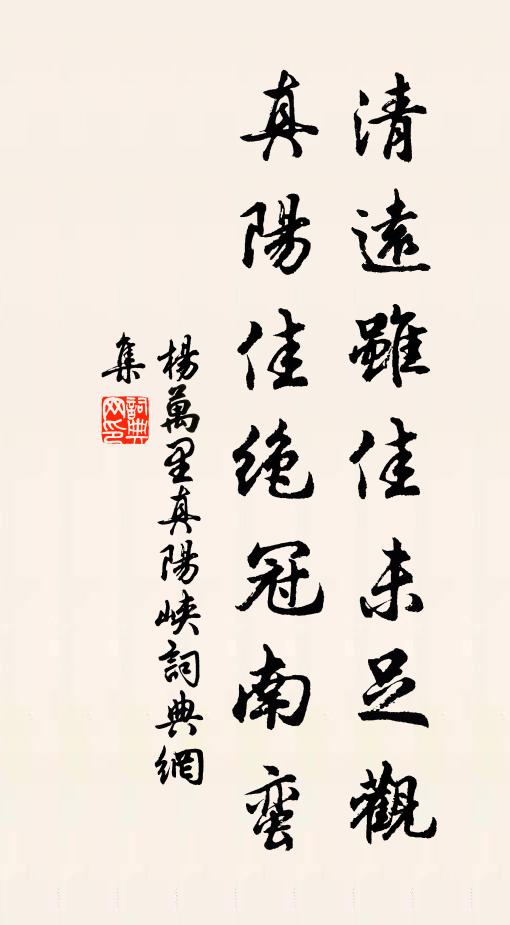 清遠雖佳未足觀
真陽佳絶冠南蛮
楊萬里真陽峽詞典網
集
詞典
网印